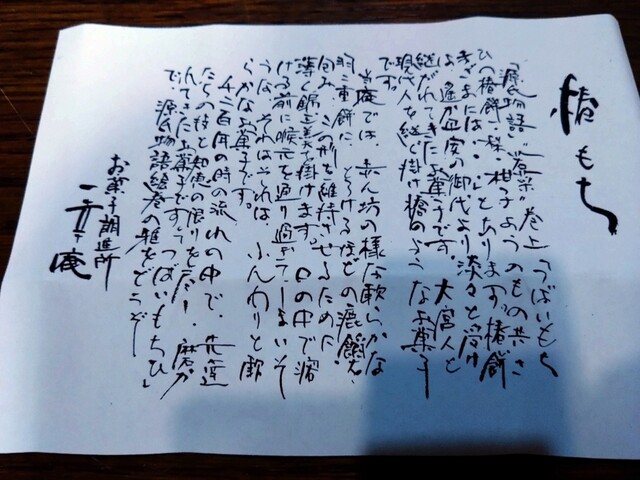 椿もち
「源氏物語」"若菜"巻上「つばいもち
ひ、椿餅・梨・柑子ようのもの共さ
まざまには‥」とあります。椿餅
は、遥か平安の御代より淡々と受け
継がれてきたお菓子です。大宮人と
現代人を継ぐ掛け橋のようなお菓子
です。
当庵では、赤ん坊の様な軟らかな
羽二重餅に、とろけるほどの漉餡を
包み、この形を維持させるために
薄く餡を羹で掛けます。口の中で溶
ける前に喉元を通り過ぎてしまいそ
うな、それはそれは、ふんわりと軟
らかなお菓子です。
千二百年の時の流れの中で、先達
たちの技と知恵の限りを尽し、磨か
れてきたお菓子です。「つばいもちひ」
で、源氏物語絵巻の雅をどうぞ‥
お菓子調進所
庵